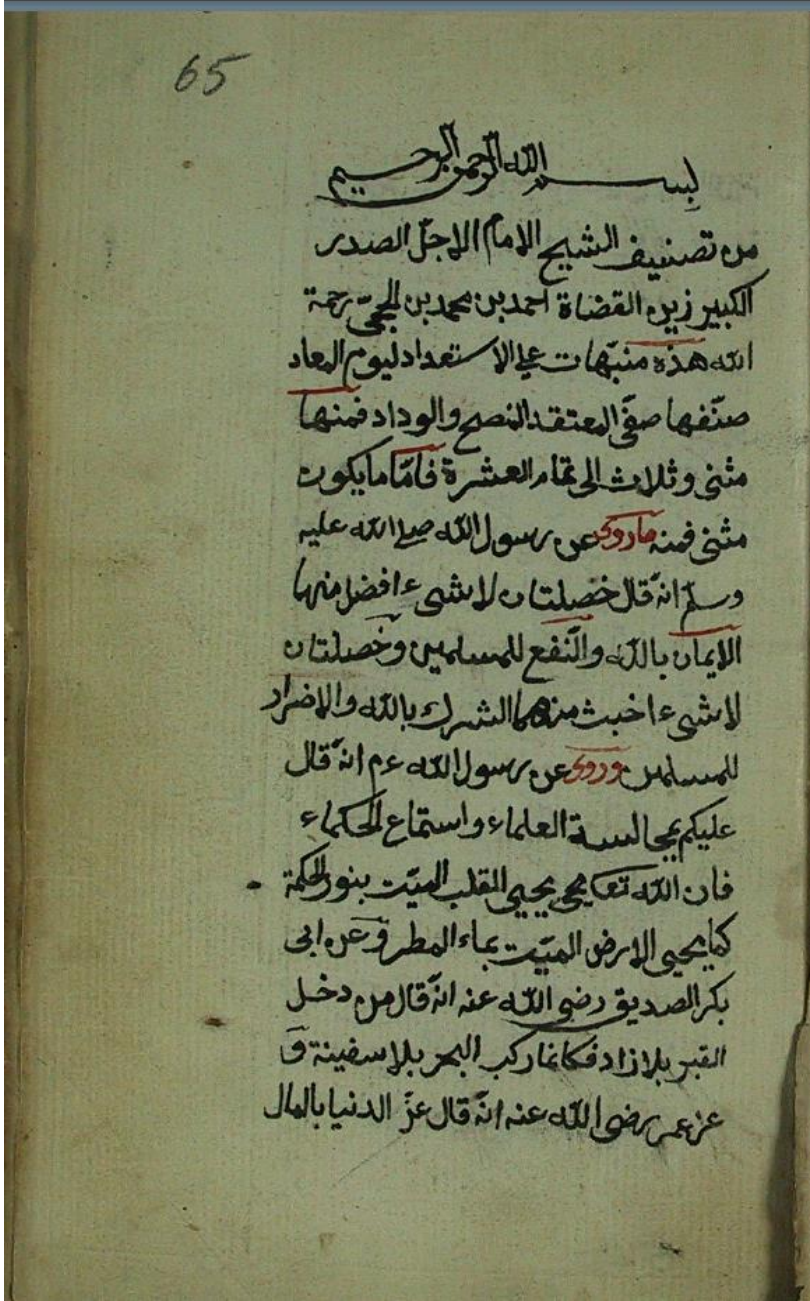 65
بسم الله الرحمن الرحيم
من تصنيف الشيخ الامام الاجل الصدر
الكبير زين القضاة احمد بن محمد بن الحجى رحمة
الله هذه منبّهات على الاستعداد ليوم المعاد
صنّفها صفّى المعتقد النصح والوداد فمنها
مثنى وثلاث الى تمام العشرة فامّا ما يكون
مثنى فمنه ماروى عن رسول الله صلى الله عليه
وسلم انّه قال خصلتان لا شىء افضل منهما
الايمان بالله والنّفع للمسلمين وخصلتان
لا شىء اخبث منهما الشرك بالله والاضرار
للمسلمين وروى عن رسول الله عم انّه قال
عليكم بمجالسة العلماء واستماع الحكماء
فان الله تعا يحيى القلب الميّت بنور الحكمة
كما يحيى الارض الميّت بماء المطر وعن ابى
بكر الصديق رضى الله عنه انّه قال من دخل
القبر بلا زاد فكانما ركب البحر بلا سفينة و
عن عمر رضى الله عنه انّه قال عزّ الدنيا بالمال